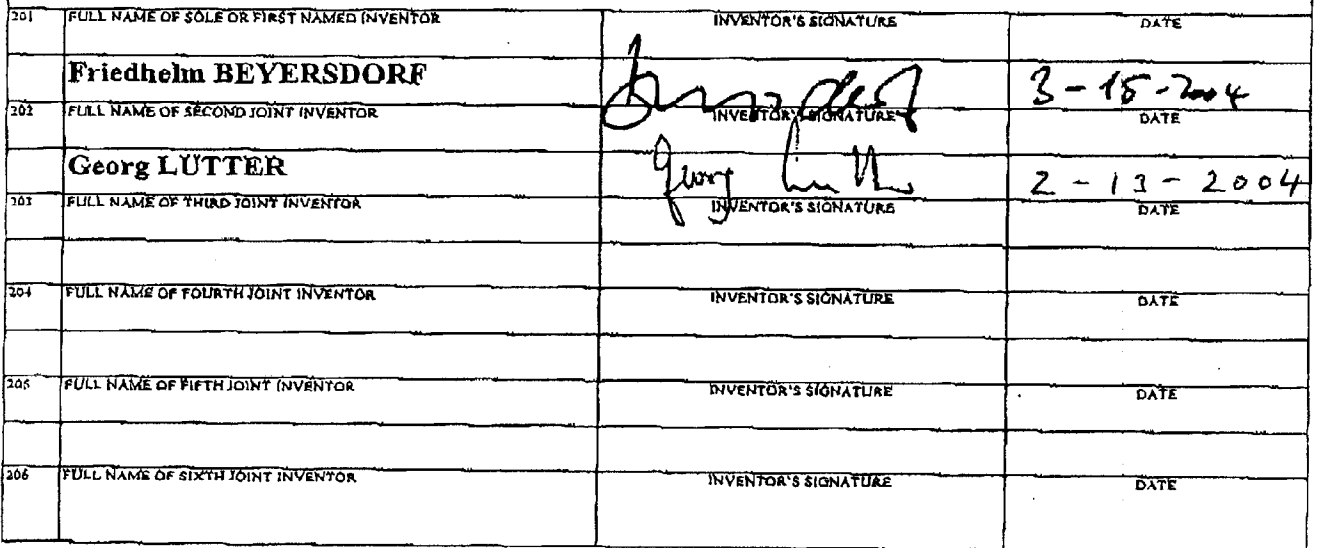 201 FULL NAME OF SOLE OR FIRST NAMED INVENTOR INVENTOR'S SIGNATURE DATE
Friedhelm BEYERSDORF 3-15-2004
202 FULL NAME OF SECOND JOINT INVENTOR INVENTOR'S SIGNATURE DATE
Georg LUTTER Georg Lutter 2-13-2004
203 FULL NAME OF THIRD JOINT INVENTOR INVENTOR'S SIGNATURE DATE
204 FULL NAME OF FOURTH JOINT INVENTOR INVENTOR'S SIGNATURE DATE
205 FULL NAME OF FIFTH JOINT INVENTOR INVENTOR'S SIGNATURE DATE
206 FULL NAME OF SIXTH JOINT INVENTOR INVENTOR'S SIGNATURE DATE